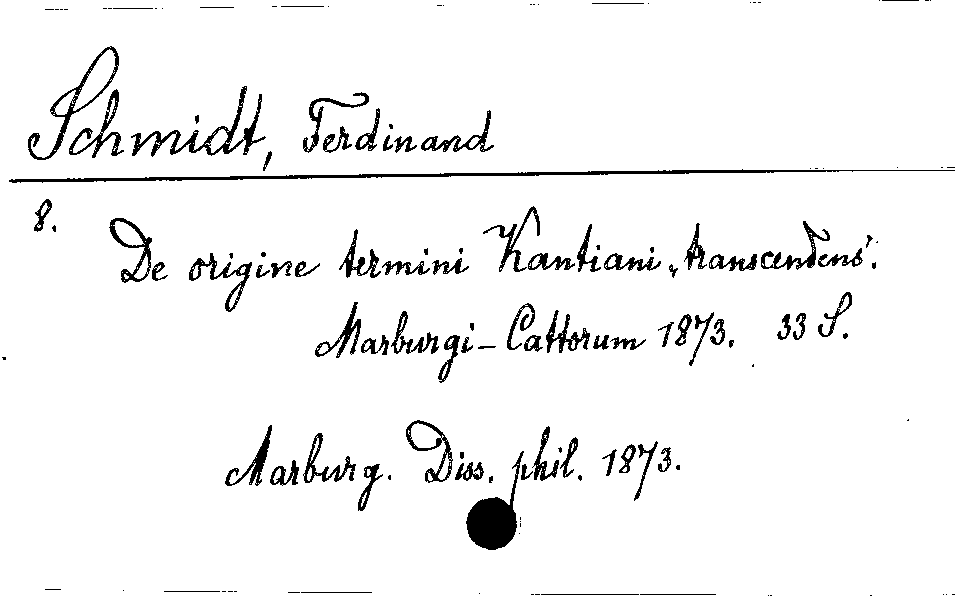 Schmidt, Ferdinand
8.
De origine termini Kantiani „transcendens“.
Marburgi-Cattorum 1873. 33 S.
Marburg. Diss. phil. 1873.